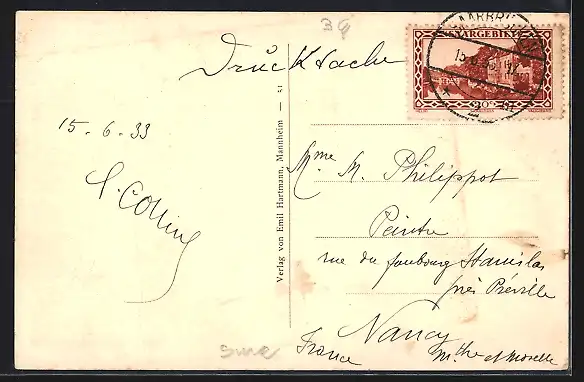 39
Drucksache
SAARBRÜCKEN
15.6.33
SAARGEBIET
15.6.33
Verlag von Emil Hartmann, Mannheim — 31
Mme M. Philippot
Peintre
rue du faubourg Stanislas
près Préville
Nancy
France
Mthe et Moselle